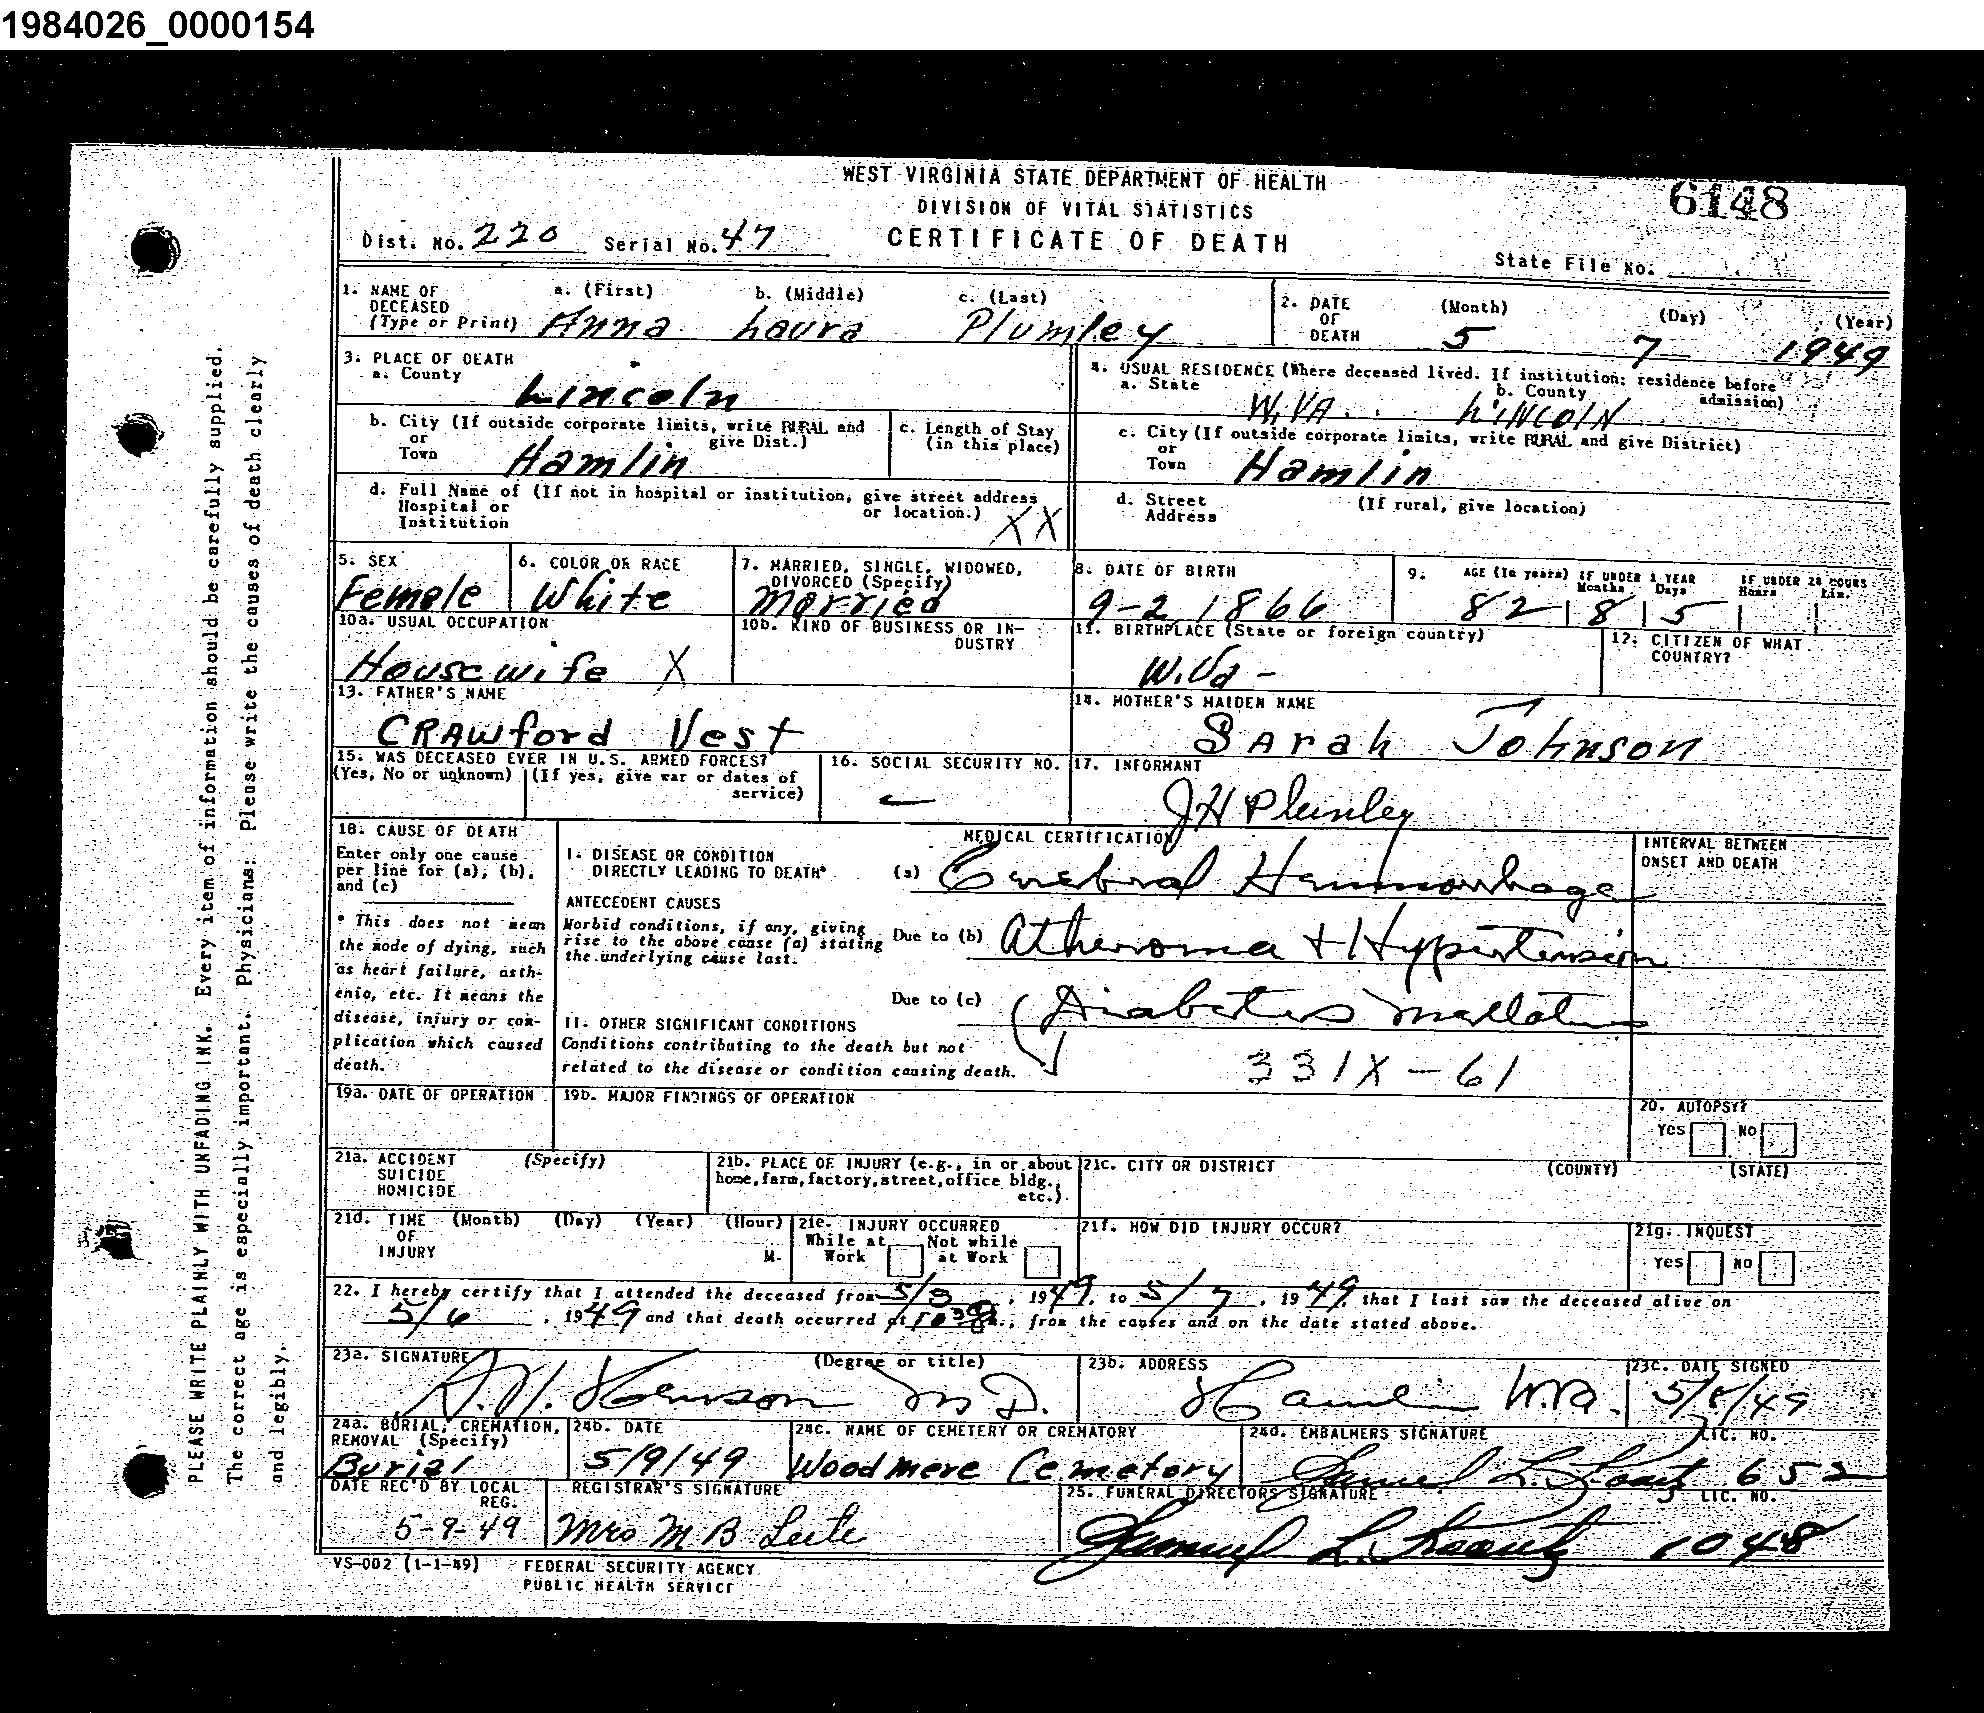 1984026_0000154
WEST VIRGINIA STATE DEPARTMENT OF HEALTH
DIVISION OF VITAL STATISTICS
CERTIFICATE OF DEATH
6148
Dist. No. 220 Serial No. 47
State File No.
1. NAME OF DECEASED (Type or Print) a. (First) b. (Middle) c. (Last)
Anna Laura Plumley
2. DATE OF DEATH (Month) (Day) (Year)
5 7 1949
3. PLACE OF DEATH
a. County Lincoln
b. City (If outside corporate limits, write RURAL and give Dist.) or Town Hamlin
c. Length of Stay (in this place)
d. Full Name of (If not in hospital or institution, give street address or location.) Hospital or Institution XX
4. USUAL RESIDENCE (Where deceased lived. If institution: residence before admission)
a. State W.VA. b. County LINCOLN
c. City (If outside corporate limits, write RURAL and give District) or Town Hamlin
d. Street Address (If rural, give location)
5. SEX Female
6. COLOR OR RACE White
7. MARRIED, SINGLE, WIDOWED, DIVORCED (Specify) Married
8. DATE OF BIRTH 9-2 1866
9. AGE (In years) 82 IF UNDER 1 YEAR Months 8 Days 5 IF UNDER 24 HOURS Hours Min.
10a. USUAL OCCUPATION Housewife X
10b. KIND OF BUSINESS OR INDUSTRY
11. BIRTHPLACE (State or foreign country) W.Va -
12. CITIZEN OF WHAT COUNTRY?
13. FATHER'S NAME CRAWford Vest
14. MOTHER'S MAIDEN NAME Sarah Johnson
15. WAS DECEASED EVER IN U.S. ARMED FORCES?
(Yes, No or unknown) (If yes, give war or dates of service)
16. SOCIAL SECURITY NO. —
17. INFORMANT J H Plumley
18. CAUSE OF DEATH
Enter only one cause per line for (a), (b), and (c)
* This does not mean the mode of dying, such as heart failure, asthenia, etc. It means the disease, injury or complication which caused death.
MEDICAL CERTIFICATION
INTERVAL BETWEEN ONSET AND DEATH
I. DISEASE OR CONDITION DIRECTLY LEADING TO DEATH* (a) Cerebral Hemmorhage
ANTECEDENT CAUSES
Morbid conditions, if any, giving rise to the above cause (a) stating the underlying cause last.
Due to (b) Atheroma + Hypertension
Due to (c) (Diabetes Mellatus
II. OTHER SIGNIFICANT CONDITIONS
Conditions contributing to the death but not related to the disease or condition causing death.
331X-61
19a. DATE OF OPERATION
19b. MAJOR FINDINGS OF OPERATION
20. AUTOPSY?
Yes No
21a. ACCIDENT SUICIDE HOMICIDE (Specify)
21b. PLACE OF INJURY (e.g., in or about home, farm, factory, street, office bldg., etc.)
21c. CITY OR DISTRICT (COUNTY) (STATE)
21d. TIME OF INJURY (Month) (Day) (Year) (Hour) M.
21e. INJURY OCCURRED
While at Work Not while at Work
21f. HOW DID INJURY OCCUR?
21g. INQUEST
Yes No
22. I hereby certify that I attended the deceased from 5/3, 1949, to 5/7, 1949, that I last saw the deceased alive on
5/6, 1949 and that death occurred at m., from the causes and on the date stated above.
23a. SIGNATURE (Degree or title) M D.
23b. ADDRESS Hamlin W.Va.
23c. DATE SIGNED 5/8/49
24a. BURIAL, CREMATION, REMOVAL (Specify) Burial
24b. DATE 5/9/49
24c. NAME OF CEMETERY OR CREMATORY Woodmere Cemetory
24d. EMBALMERS SIGNATURE LIC. NO.
Samuel L. 652
DATE REC'D BY LOCAL REG. 5-9-49
REGISTRAR'S SIGNATURE Mrs M B
25. FUNERAL DIRECTORS SIGNATURE LIC. NO.
Samuel L. 1048
VS-002 (1-1-49) FEDERAL SECURITY AGENCY
PUBLIC HEALTH SERVICE
PLEASE WRITE PLAINLY WITH UNFADING INK. Every item of information should be carefully supplied.
The correct age is especially important. Physicians: Please write the causes of death clearly
and legibly.